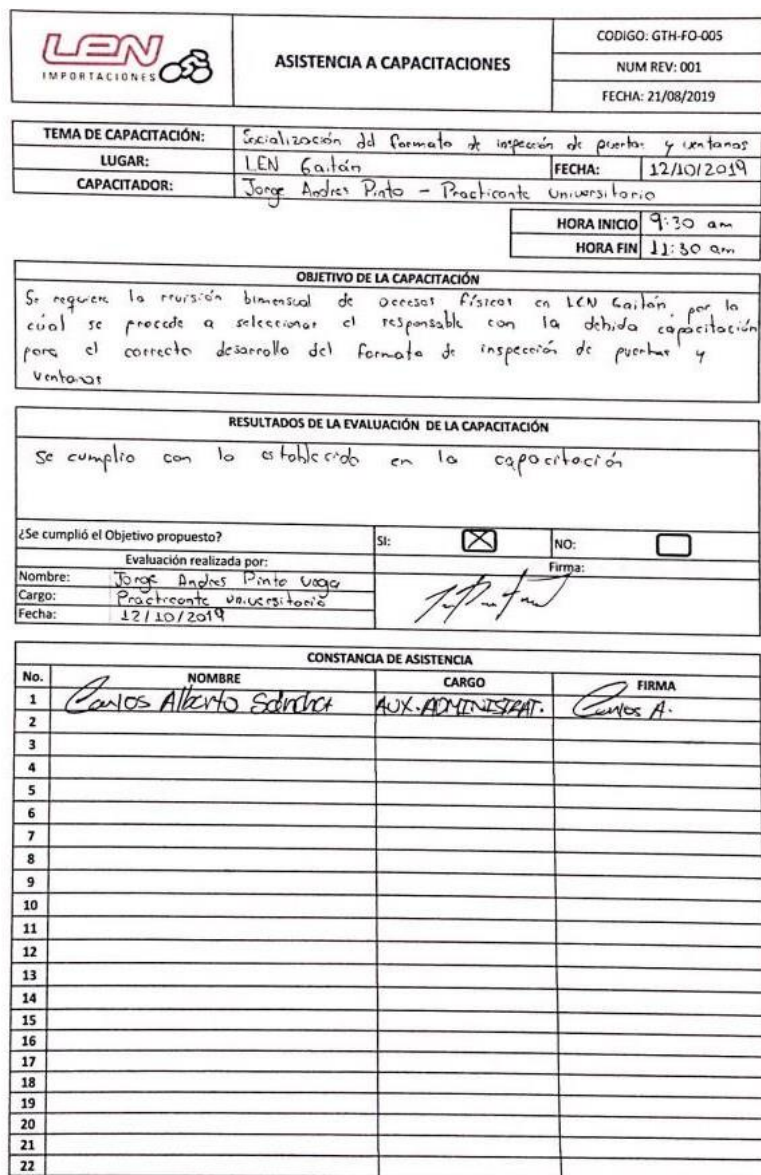 LEN
IMPORTACIONES
ASISTENCIA A CAPACITACIONES
CODIGO: GTH-FO-005
NUM REV: 001
FECHA: 21/08/2019
TEMA DE CAPACITACIÓN: Socialización del formato de inspección de puertas y ventanas
LUGAR: LEN Gaitán FECHA: 12/10/2019
CAPACITADOR: Jorge Andres Pinto - Practicante Universitario
HORA INICIO 9:30 am
HORA FIN 11:30 am
OBJETIVO DE LA CAPACITACIÓN
Se requiere la revisión bimensual de accesos físicos en LEN Gaitán, por lo
cúal se procede a seleccionar el responsable con la debida capacitación
para el correcto desarrollo del formato de inspección de puertas y
ventanas
RESULTADOS DE LA EVALUACIÓN DE LA CAPACITACIÓN
Se cumplio con lo establecido en la capacitación
¿Se cumplió el Objetivo propuesto? SI: NO:
Evaluación realizada por: Firma:
Nombre: Jorge Andres Pinto Vega
Cargo: Practicante Universitario
Fecha: 12/10/2019
CONSTANCIA DE ASISTENCIA
No. NOMBRE CARGO FIRMA
1 Carlos Alberto Sánchez AUX. ADMINISTRAT. Carlos A.
2
3
4
5
6
7
8
9
10
11
12
13
14
15
16
17
18
19
20
21
22